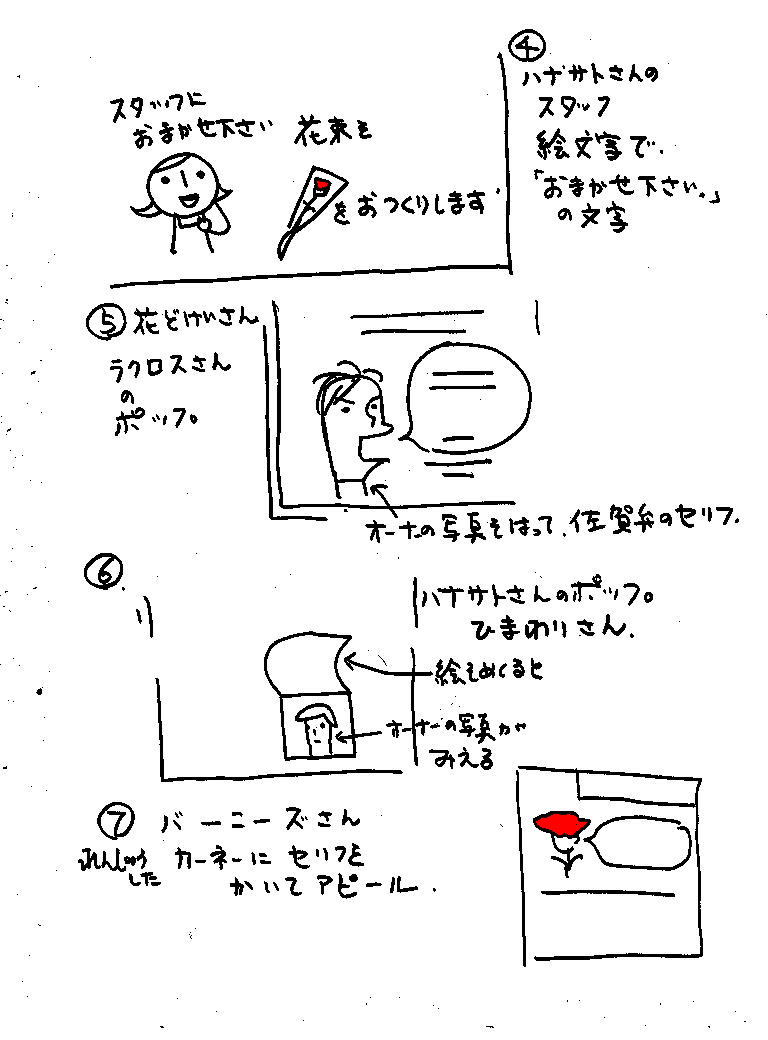 ④
ハナサトさんの
スタッフ
絵文字で、
「おまかせ下さい。」
の文字
スタッフに
おまかせ下さい
花束を
をおつくりします
⑤花どけいさん
ラクロスさん
の
ポップ。
オーナーの写真をはって、佐賀弁のセリフ.
⑥
ハナサトさんのポップ。
ひまわりさん.
絵をめくると
オーナーの写真が
みえる
⑦ バーニーズさん
カーネーに セリフを
かいて アピール.
した